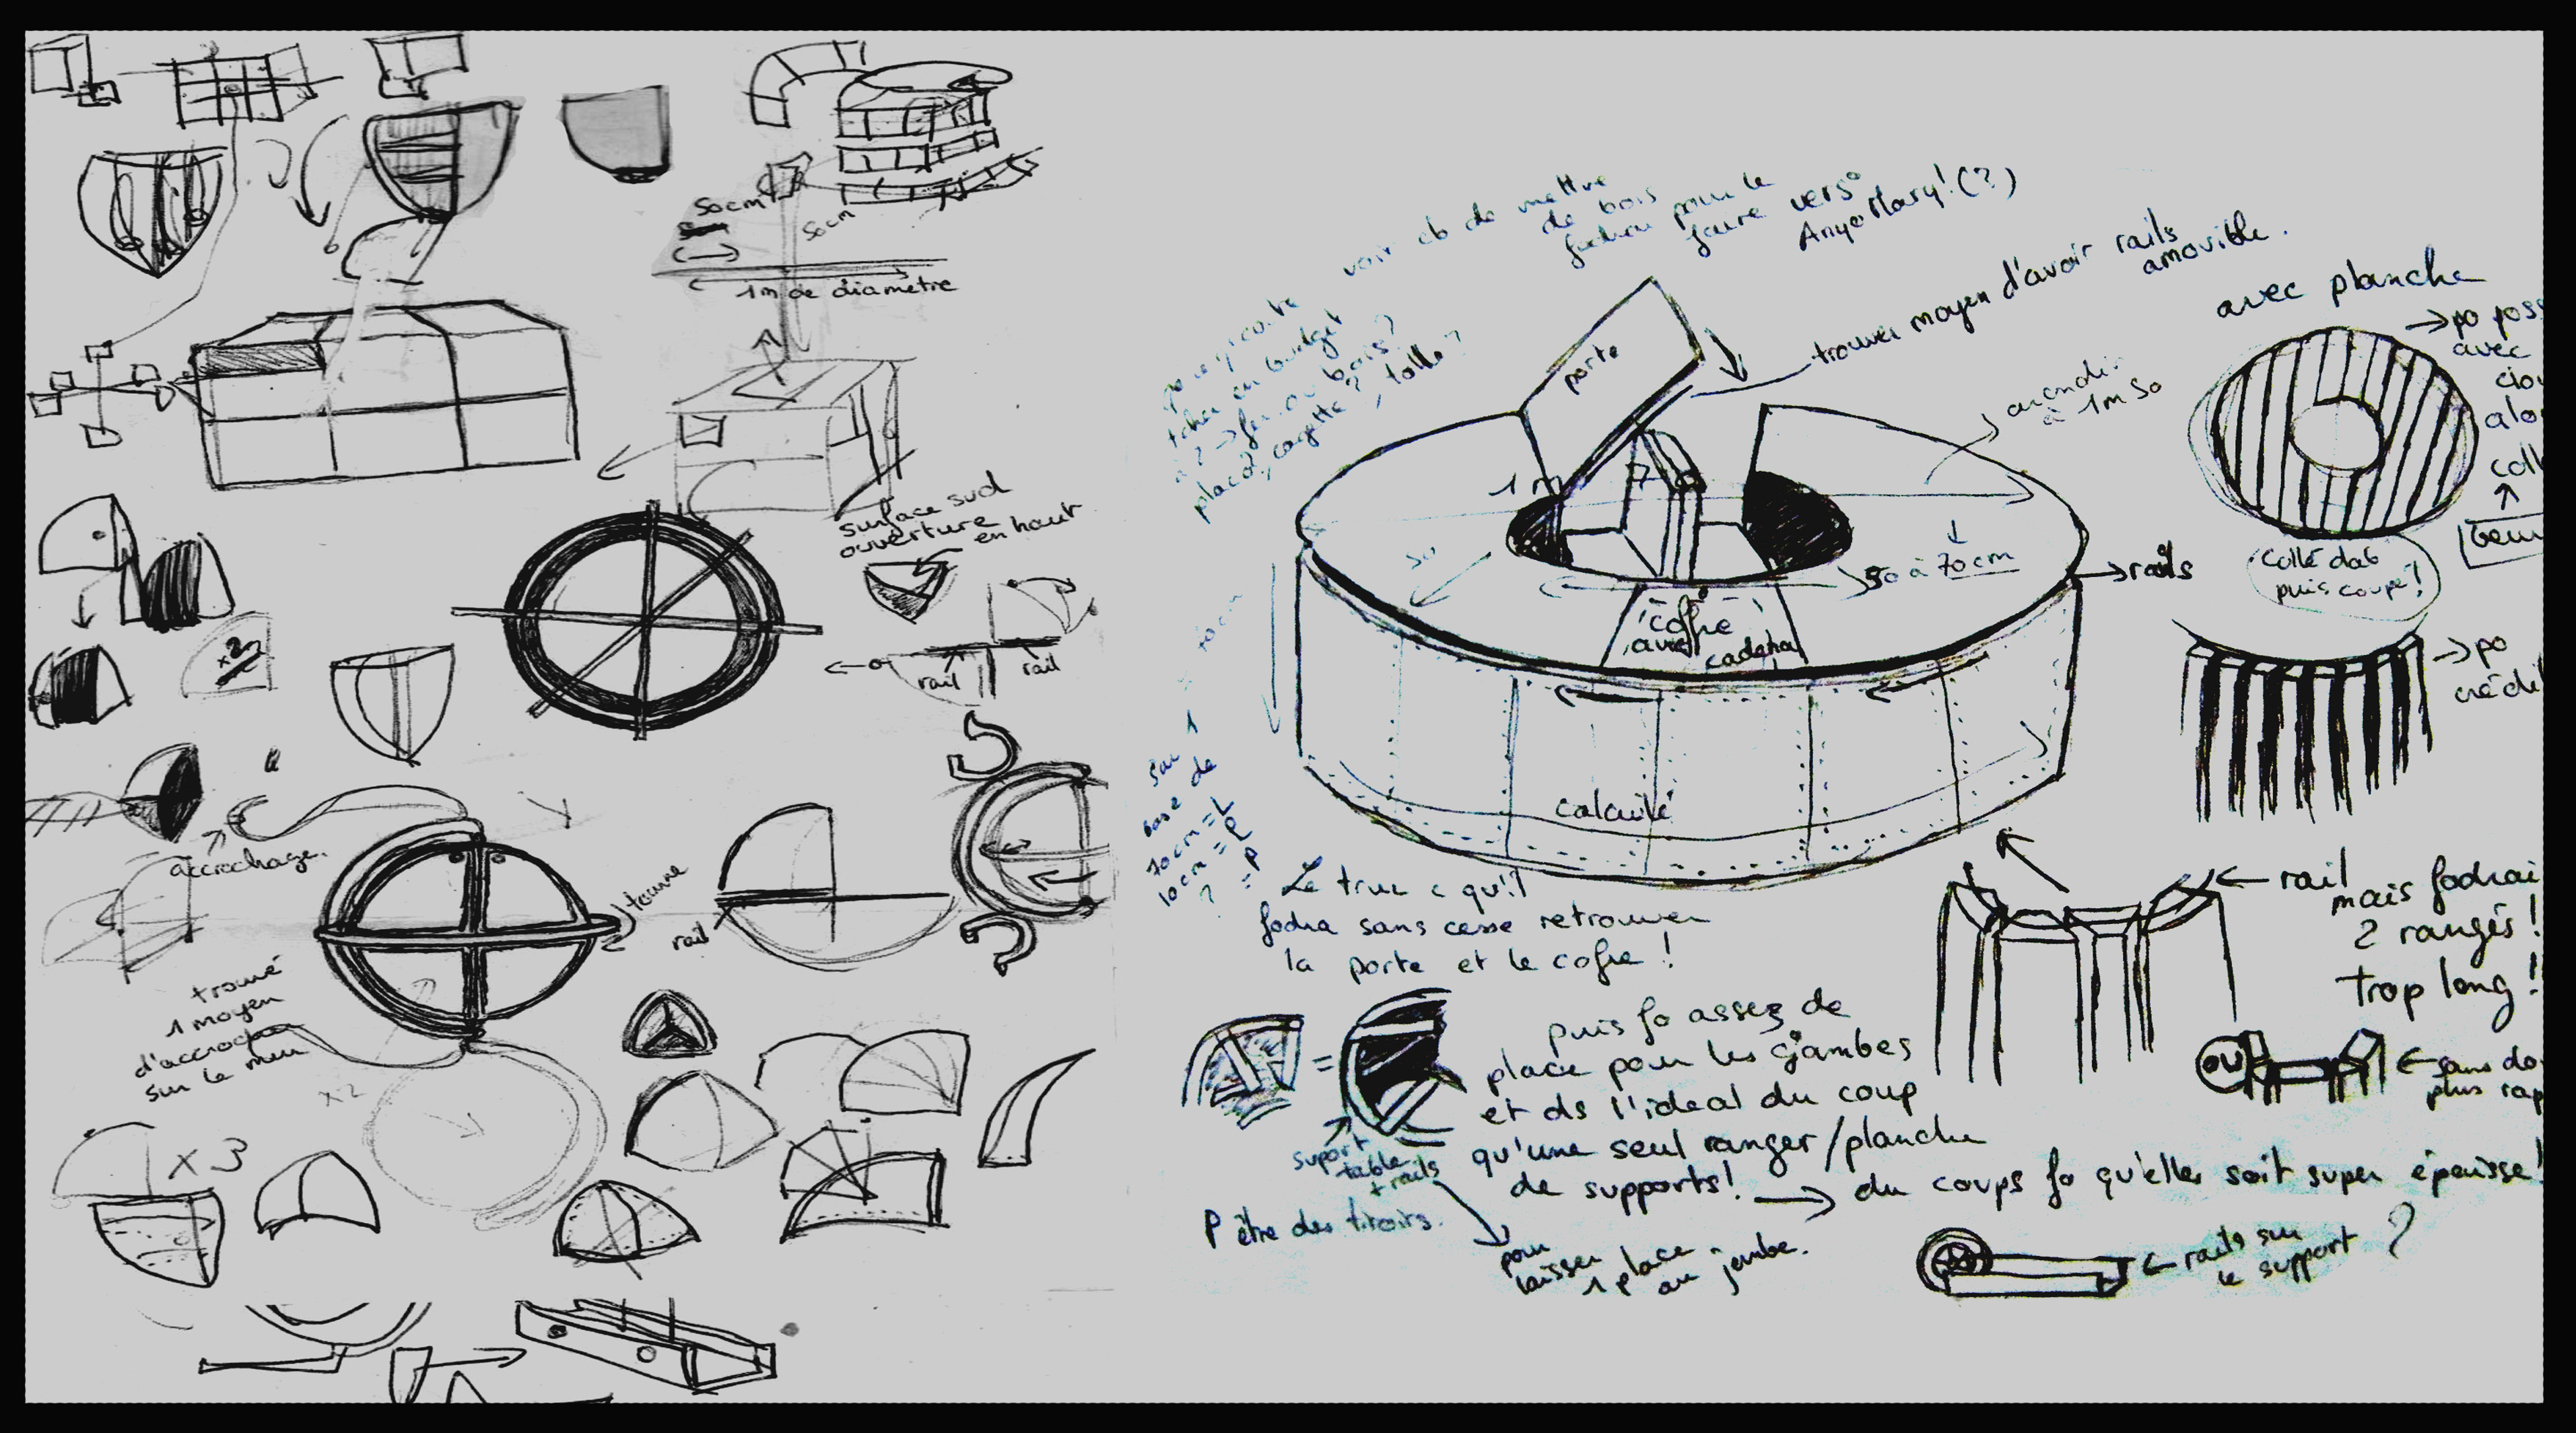 50cm
50cm
1m de diamètre
surface sud
ouverture
en haut
rail
rail
x2
accrochage.
tourne
rail
trouvé
1 moyen
d'accrocher
sur le mur
x2
x3
voir cb de mettre
de bois
fodrai pour le
faire verso
AnyoMary! (?)
trouver moyen d'avoir rails
amovible.
porte
arrondir
à 1m50
1m
50 à 70cm
→rails
coffre
avec
cadena
calculé
70cm
sur 1
base de
70cm = L
10cm = P
?
= P
avec planche
→po poss
avec
clou
alo
coll
Collé dab
puis coupé!
→po
Le truc c qu'il
fodra sans cesse retrouver
la porte et le cofre !
← rail
mais fodrai
2 rangés !
trop long !
OU
← sans do
plus rap
=
suport
table
+ rails
P être des tiroirs.
puis fo assez de
place pour les jambes
et ds l'ideal du coup
qu'une seul ranger/planche
de supports! → du coups fo qu'elles soit super épaisse!
pour
laisser
1 place
au jambe.
← rails sur
le support ?